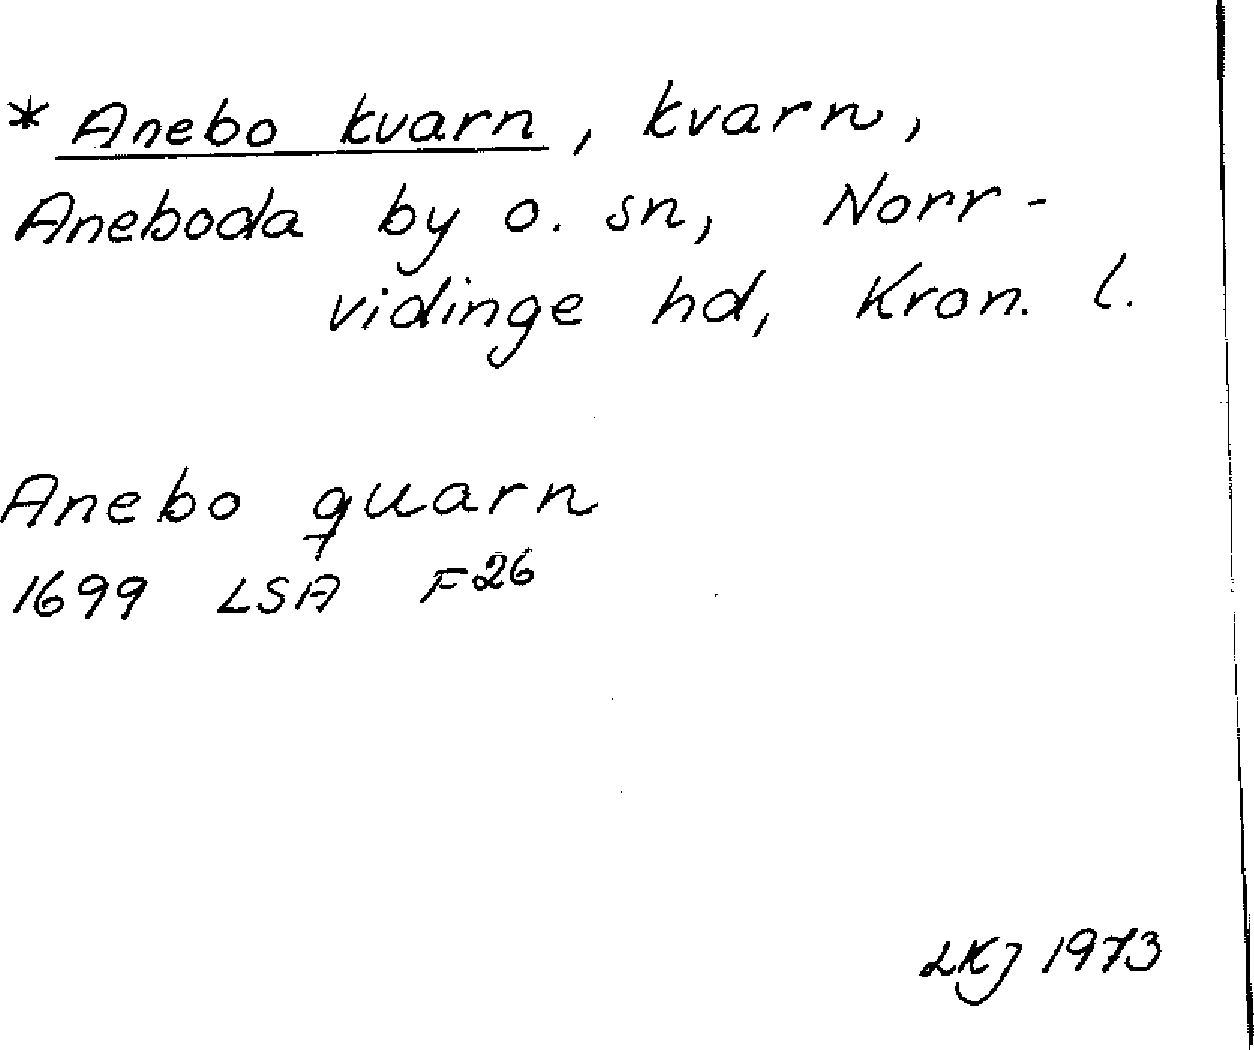 * Anebo kvarn, kvarn,
Aneboda by o. sn, Norr-
vidinge hd, Kron. l.
Anebo quarn
1699 LSA F26
LKJ 1973